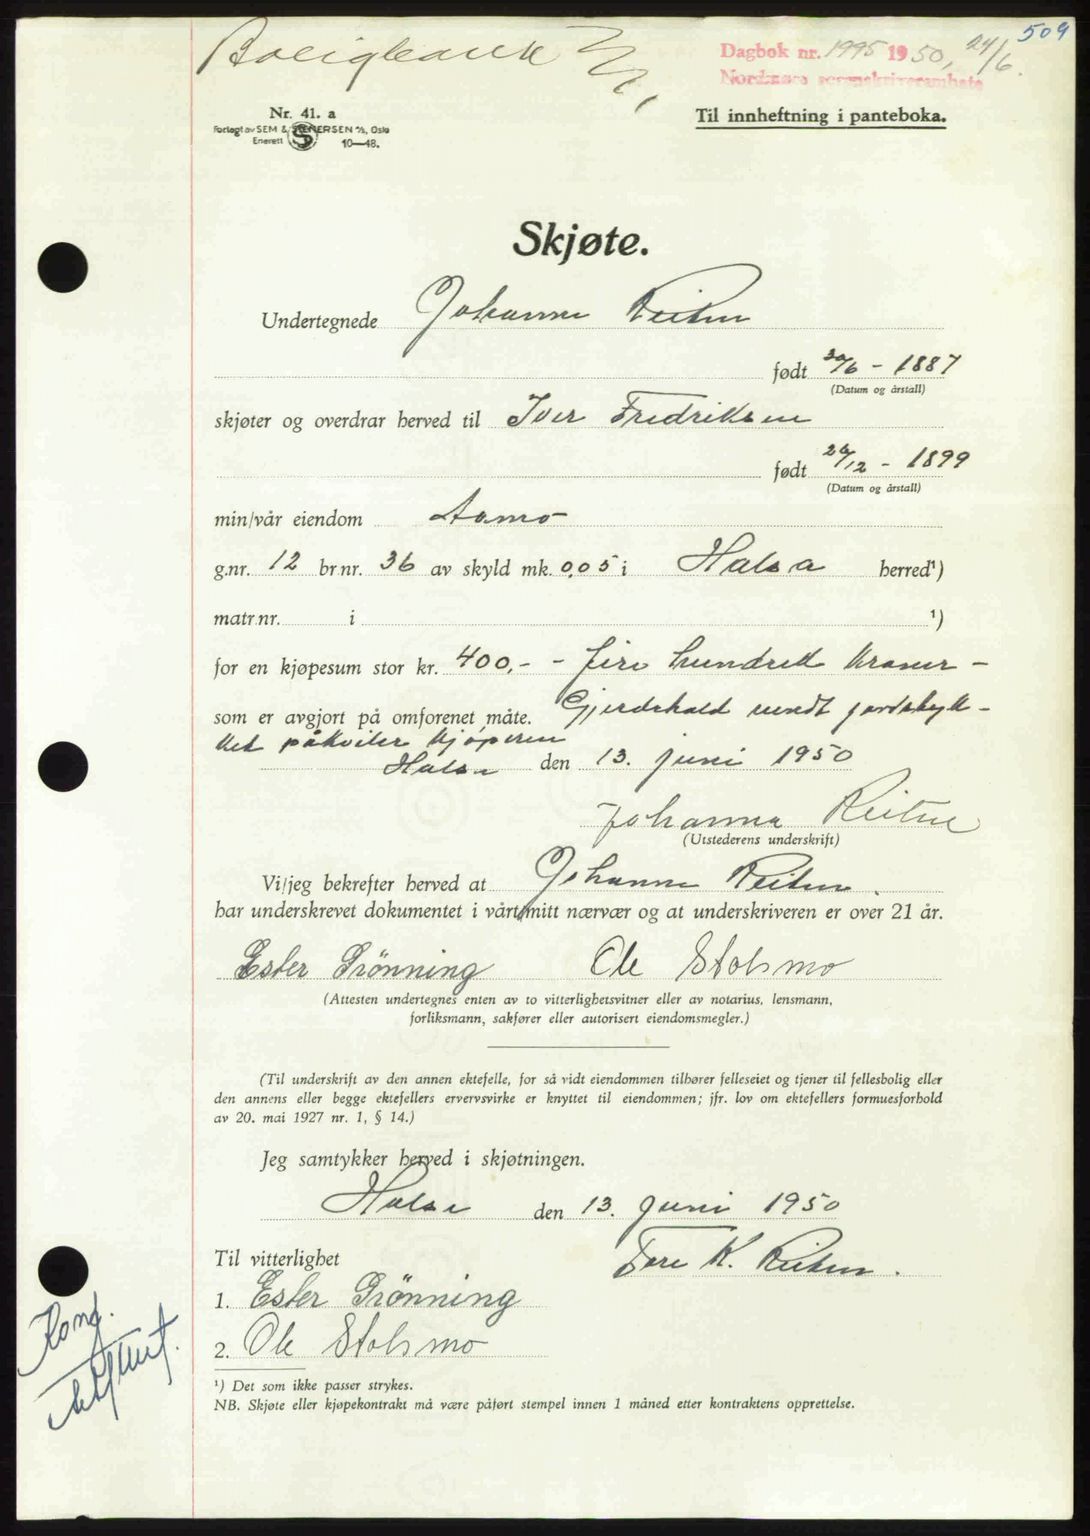 509
Boligbank
Dagbok nr. 1995 1950, 24/6.
Nordmøre sorenskriverembete
Nr. 41. a
Forlagt av SEM & STENERSEN A/S, Oslo
Enerett S 10—48.
Til innheftning i panteboka.
Skjøte.
Undertegnede Johanna Reiten
født 30/6 - 1887
(Datum og årstall)
skjøter og overdrar herved til Iver Fredriksen
født 26/12 - 1899
(Datum og årstall)
min/vår eiendom Aamo
g.nr. 12 br.nr. 36 av skyld mk. 0,05 i Halsa herred¹)
matr.nr. i ¹)
for en kjøpesum stor kr. 400,- - fire hundred kroner -
som er avgjort på omforenet måte. Gjerdehold rundt jordstyk-
ket påkviler kjøperen
Halsa den 13. juni 1950
Johanna Reiten
(Utstederens underskrift)
Vi/jeg bekrefter herved at Johanna Reiten.
har underskrevet dokumentet i vårt/mitt nærvær og at underskriveren er over 21 år.
Ester Grönning Ole Stolsmo
(Attesten undertegnes enten av to vitterlighetsvitner eller av notarius, lensmann,
forliksmann, sakfører eller autorisert eiendomsmegler.)
(Til underskrift av den annen ektefelle, for så vidt eiendommen tilhører felleseiet og tjener til fellesbolig eller
den annens eller begge ektefellers ervervsvirke er knyttet til eiendommen; jfr. lov om ektefellers formuesforhold
av 20. mai 1927 nr. 1, § 14.)
Jeg samtykker herved i skjøtningen.
Halsa den 13. juni 1950
Til vitterlighet Tore K. Reiten.
1. Ester Grönning
2. Ole Stolsmo
Konf.
¹) Det som ikke passer strykes.
NB. Skjøte eller kjøpekontrakt må være påført stempel innen 1 måned etter kontraktens opprettelse.